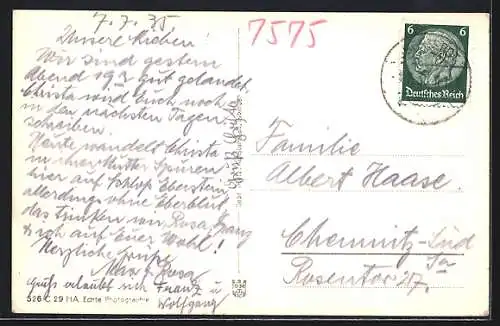 7.7.35
7575
Unsere Lieben!
Wir sind gestern
Abend 19² gut gelandet,
Christa wird Euch noch
in den nächsten Tagen
schreiben.
Heute wandelt Christa
in ihrer Mutter Spuren
hier auf Schloß Eberstein,
allerdings ohne Eberblut
das trinken wir, Rosa, Franz
& ich auf Euer Wohl!
Herzliche Grüße
Max & Rosa
Gruß erlaubt sich Frantz u
Wolfgang
326 C 29 HA Echte Photographie
6 6
Deutsches Reich
Familie
Albert Haase
Chemnitz-Süd
Sa
Rosentor 27.